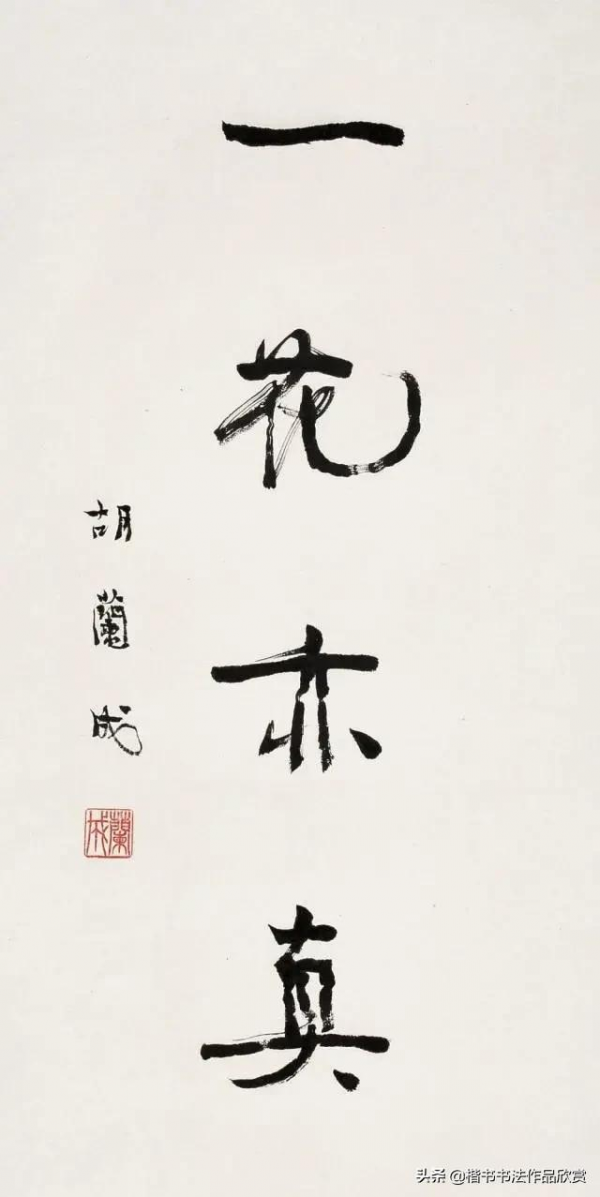 一花亦真
胡蘭成
蘭成
头条 @楷书书法作品欣赏